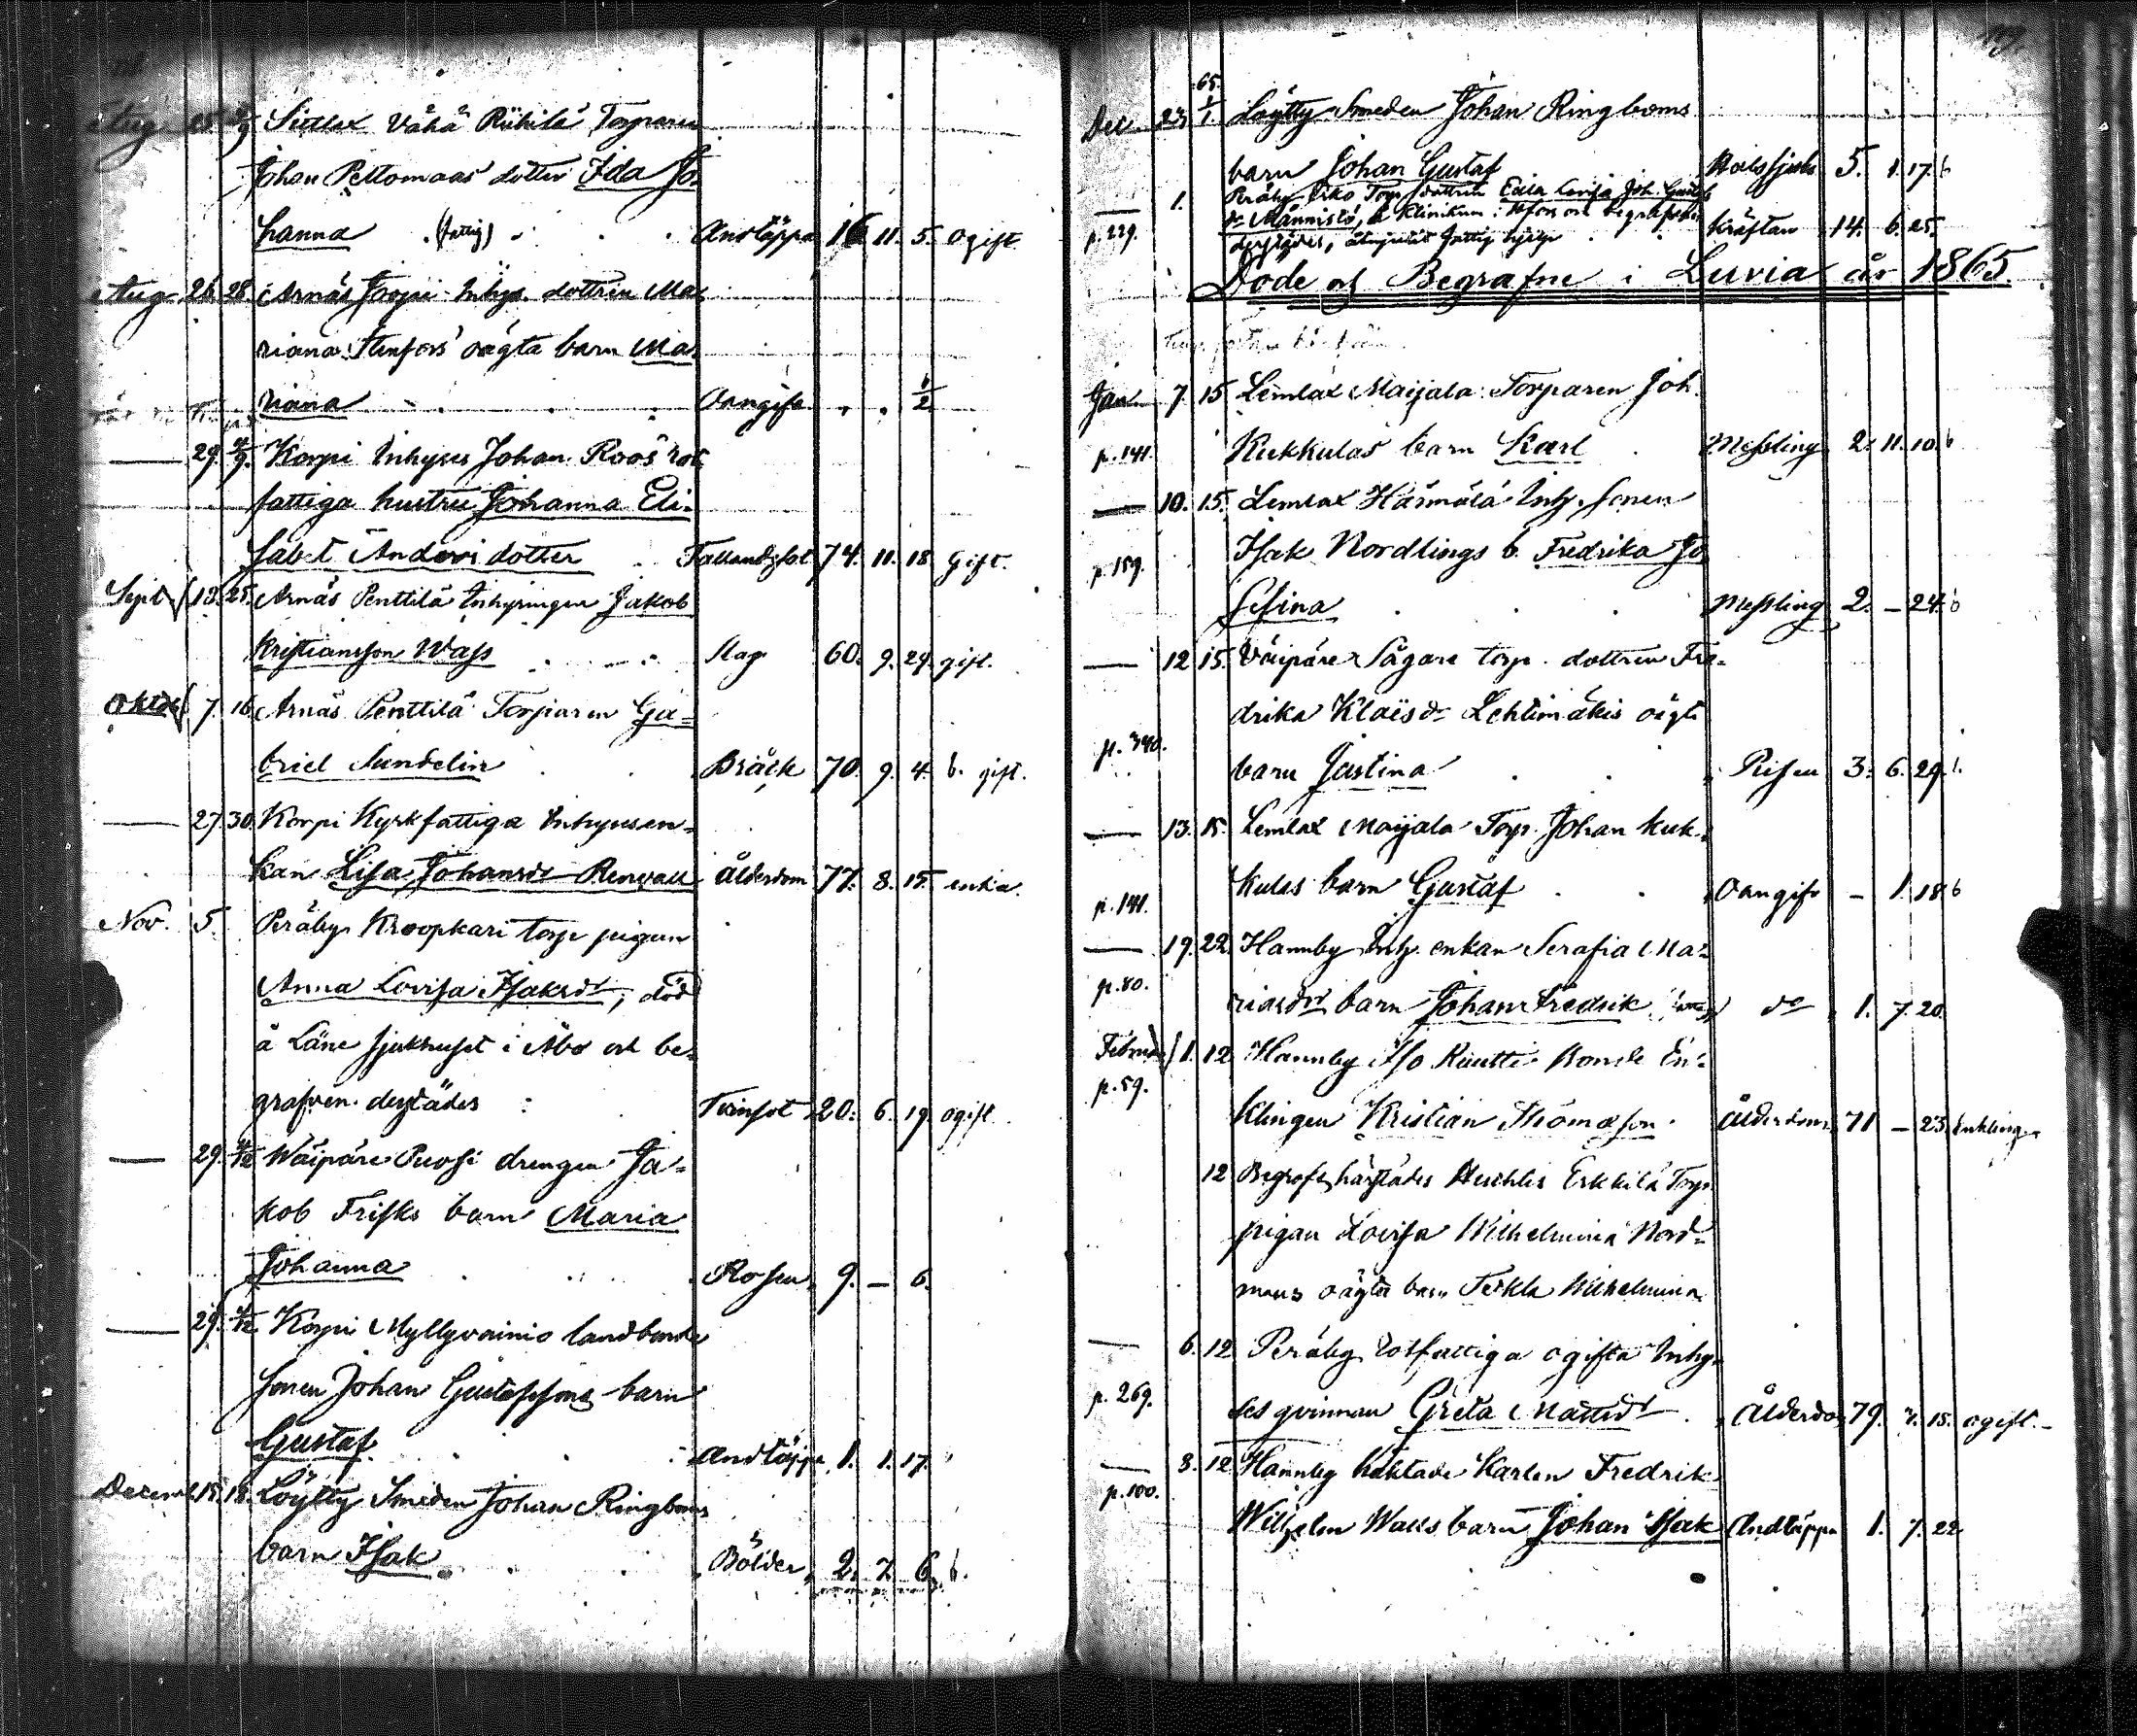 Aug. 25. Sietlax Vähä Riihilä Torparen
Johan Peltomaas dotter Ida Jo-
hanna (fattig) Andtäppa 16 11. 5. ogift.
Aug. 26. 28. Arnäs Inhys. dottren Ma-
riana Stenfors oägta barn Ma-
riana Oangifv. 1/2
— 29. 4/9. Korpi Inhyses Johan Roos rot
fattiga hustru Johanna Eli-
sabet Anders dotter 74. 11. 18 Gift.
Sept. 18. 25. Arnäs Penttilä Inhysingen Jakob
Kristiansson Wass Slag 60. 9. 29. gift.
Oktob. 7. 16 Arnäs Penttilä Torparen Ga-
briel Sundelin Bråck 70. 9. 4. b. gift.
— 27. 30. Korpi Kyrkfattiga Inhysesen-
kan Lisa Johansdr Renvall Ålderdom 77. 8. 15. enka.
Nov. 5. Peräby Kroopkari torp pigan
Anna Lovisa Isaksdr, död
å Läne sjukhuset i Åbo och be-
grafven derstädes 20. 6. 19. ogift.
— 29. 4/12 Wäipäre Puosi drengen Ja-
kob Frisks barn Maria
Johanna Rosen 9. — 6.
— 29. 4/12 Korpi Myllyvainio landbonde
sonen Johan Gustafssons barn
Gustaf Andtäppa 1. 1. 17.
Decemb. 15. 18. Löytty Smeden Johan Ringboms
barn Isak Bölder 2. 7. 6. b.
65.
Dec. 23. 1/1 Löytty Smeden Johan Ringboms
barn Johan Gustaf Halssjuk 5. 1. 17. b
— 1. Peräby Torp. dottren Lovisa Joh. Gustafs
p. 229. dr Männistö, å Klinikum i Hfors och begrafven
derstädes, fattig hjelp Kräftan 14. 6. 25.
Döde och Begrafne i Luvia år 1865.
Jan. 7. 15 Lemlax Maijala Torparen Joh.
p. 141. Kukkulas barn Karl Messling 2. 11. 10. b
— 10. 15. Lemlax Härmälä Inh. sonen
p. 159. Isak Nordlings b. Fredrika Jo
sefina Messling 2. — 24. b
— 12 15. Väipäre Sågare torp. dottren Fre-
drika Klasdr Lehtimäkis oägt.
p. 340. barn Justina Risen 3. 6. 29. b.
— 13. 15. Lemlax Maijala Torp. Johan Kuk-
p. 141. kulas barn Gustaf Oangifv — 1. 18. b
— 19. 22. Hannby Inh. enkan Serafia Ma-
p. 80. riasdrs barn Johan Fredrik do 1. 7. 20.
Februari 1. 12 Hannby Iso Knutti Bonde En-
p. 59. klingen Kristian Thomasson Ålderdom 71 — 23 Enkling
12 Begrafs härstädes Erkkilä Torp
pigan Lovisa Wilhelmina Nord-
mans oägta barn Tekla Wilhelmina
— 6. 12 Peräby rotfattiga ogifta Inhy-
p. 269. ses qvinnan Greta Mattsdr Ålderdom 79. 7. 15. ogift.
— 8. 12 Hannby häktade Karlen Fredrik
p. 100. Wilhelm Walls barn Johan Isak Andtäppa 1. 7. 22